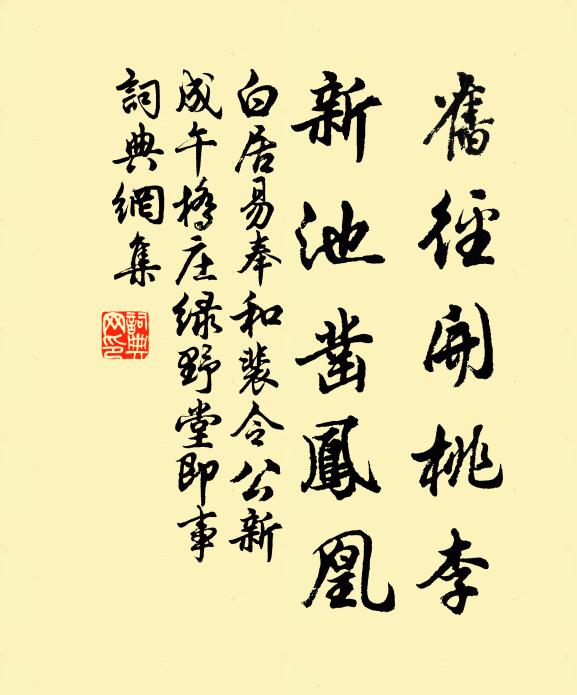 舊徑開桃李
新池鑿鳳凰
白居易奉和裴令公新
成午橋庄緑野堂即事
詞典網集
詞典
网印